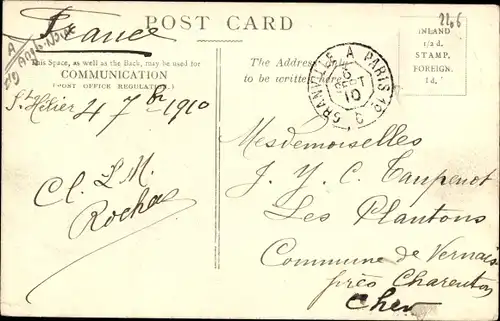 France
POST CARD
22.6
A
This Space, as well as the Back, may be used for
COMMUNICATION
(POST OFFICE REGULATION.)
The Address only
to be written here
INLAND
1/2 d.
STAMP.
FOREIGN.
1d.
GRANVILLE A PARIS 1º
6
SEPT
10
St Hélier 4 7br 1910
Cl. L. M.
Rochas
Mesdemoiselles
J. Y. C. Taupenot
Les Plantons
Commune de Vernais
près Charenton
Cher